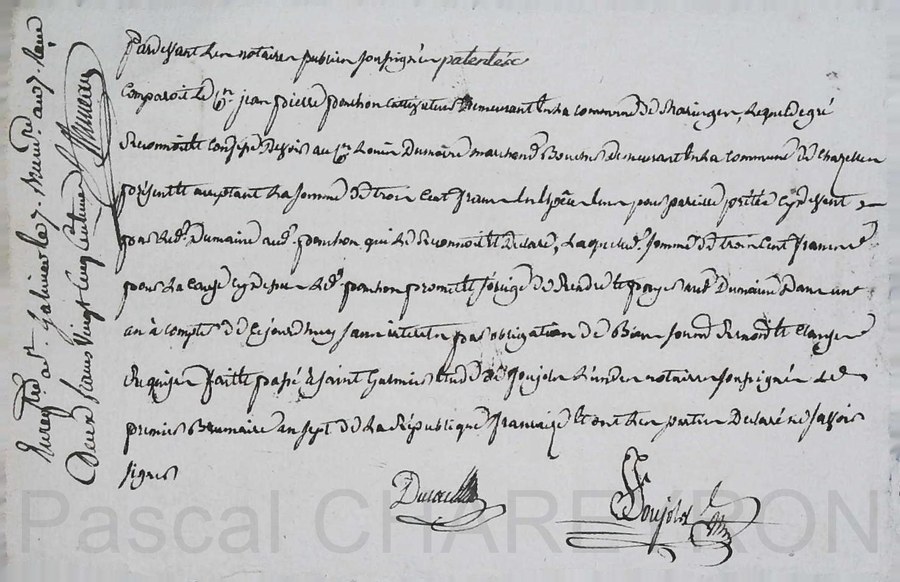 Pardevant les notaires publics soussignés patentés
Comparoit le Cn. jean pierre ponchon cultivateur demeurant en la commune de Maringes, lequel de gré
Reconnoit et confesse devoir au Cn. Dumaine marchand Boucher demeurant en la commune de Chazelles
présent et acceptant la somme de trois cent francs en Espèces pour pareille prêtée cy devant
par led. Dumaine aud. ponchon, qui le Reconnoit et Declare, laquelle d. somme de trois cent francs
pour la cause cy dessus led. ponchon promet et s'oblige de Rendre et payer aud. Dumaine dans un
an à compter de ce jourd'huy sans interets par obligation de Biens soumis Renond et clauses
Requises fait et passé à Saint Galmier etude de Soujols l'un des notaires soussignés le
premier Brumaire an sept de la République française et ont les parties Declaré ne savoir
signer
Soujols
Enregtré a St. Galmier le 7. Brumre. an 7. Reçu
Deux francs vingt cinq centimes
Pascal CHAREYRON